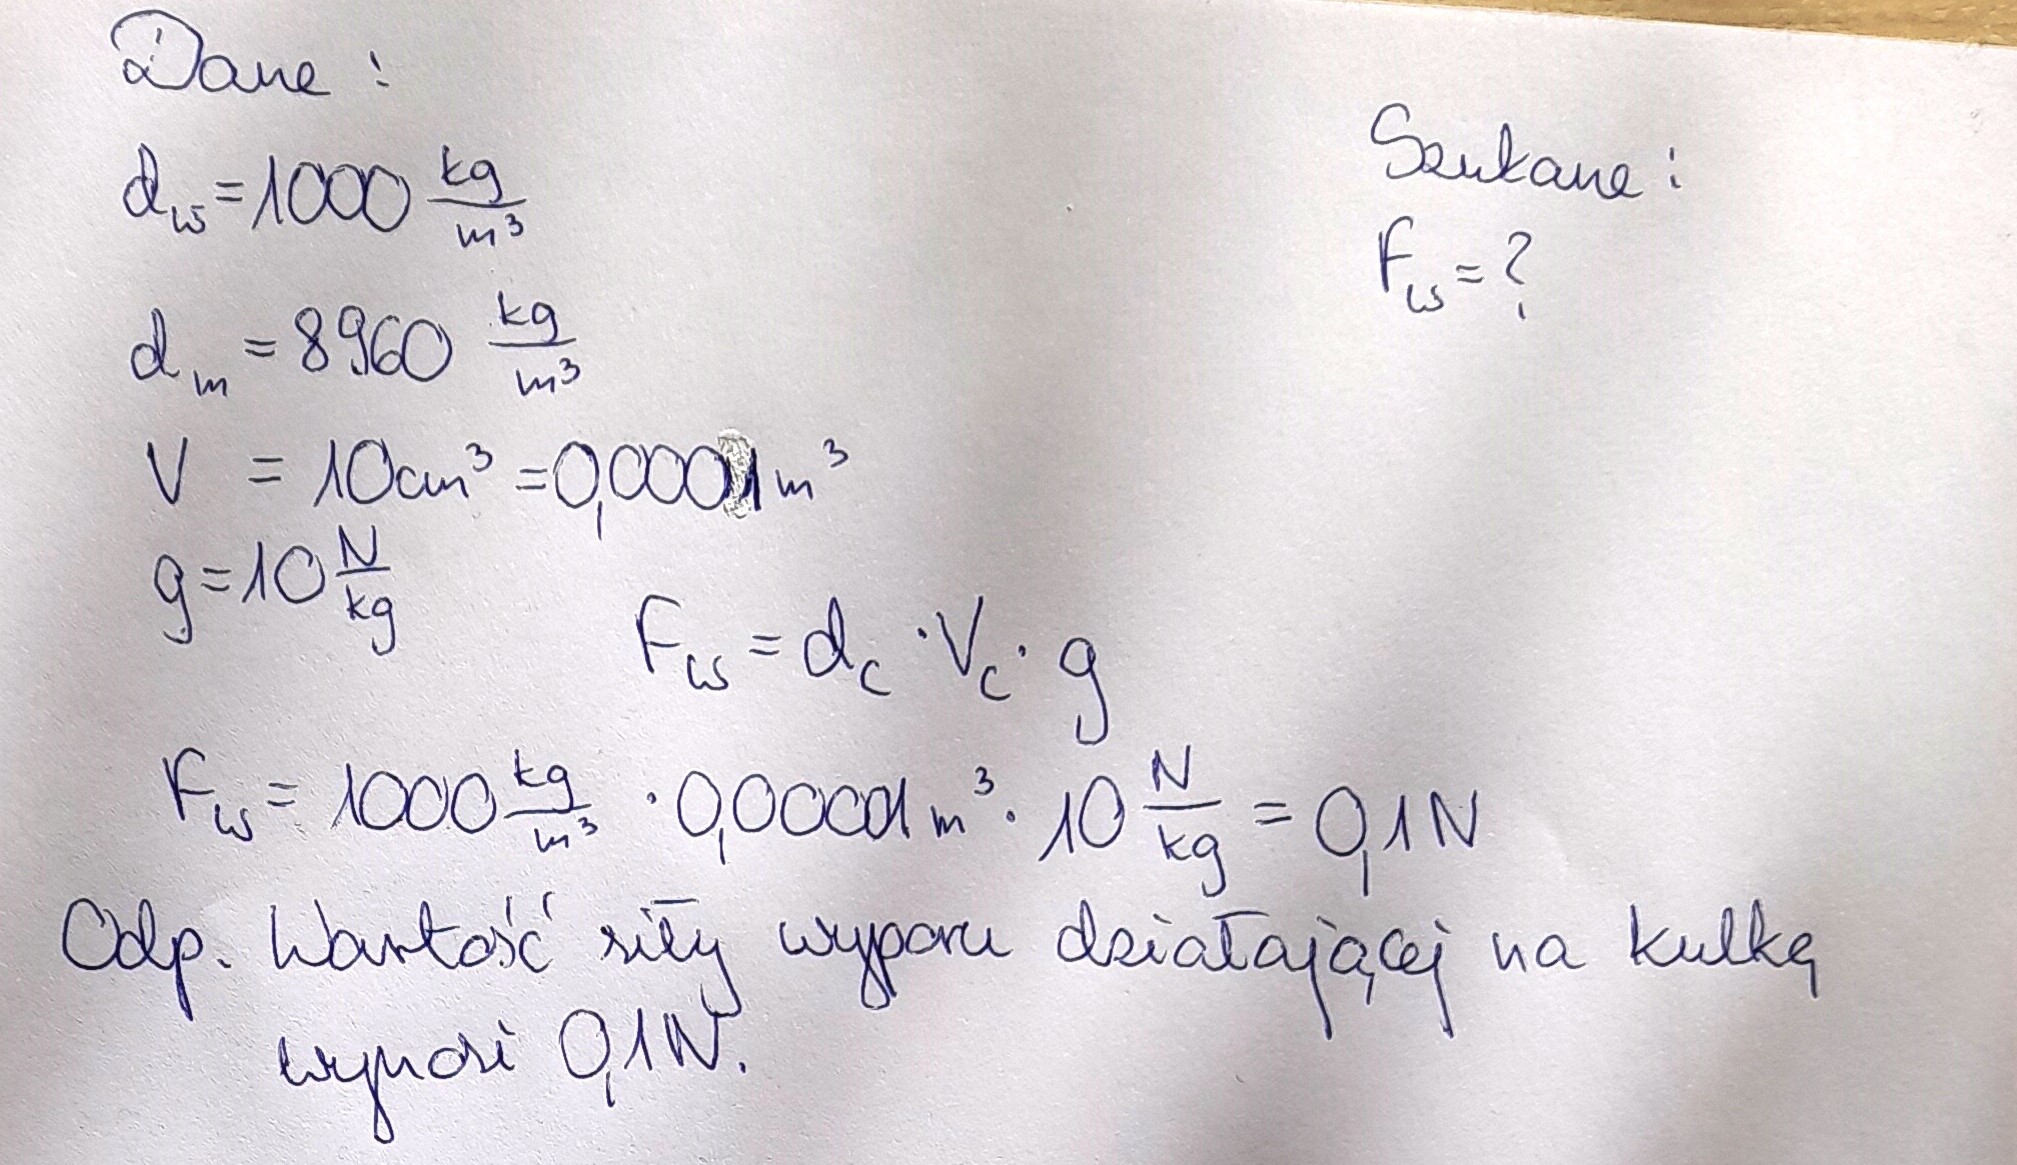 Dane:
Szukane:
d_w = 1000 kg/m³
F_w = ?
d_m = 8960 kg/m³
V = 10cm³ = 0,00001 m³
g = 10 N/kg
F_w = d_c · V_c · g
F_w = 1000 kg/m³ · 0,00001 m³ · 10 N/kg = 0,1 N
Odp. Wartość siły wyporu działającej na kulkę
wynosi 0,1 N.